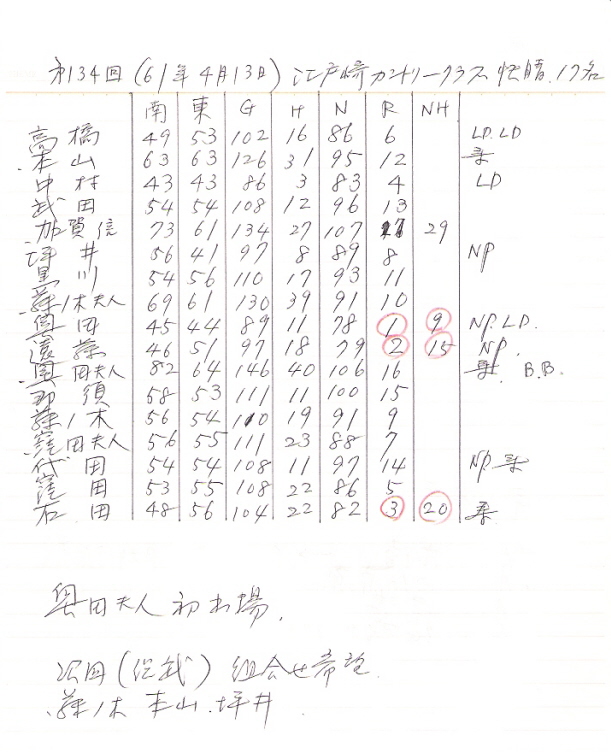 第134回 (61年4月13日) 江戸崎カントリークラブ 快晴. 17名
南 東 G H N R NH
高橋 49 53 102 16 86 6 LD. LD
本山 63 63 126 31 95 12
中村 43 43 86 3 83 4 LD
武田 54 54 108 12 96 13
加賀信 73 61 134 27 107 17 29
坪井 56 41 97 8 89 8 NP
黒川 54 56 110 17 93 11
蘓ノ木夫人 69 61 130 39 91 10
奥田 45 44 89 11 78 1 9 NP. LD.
遠藤 46 51 97 18 79 2 15 NP.
奥田夫人 82 64 146 40 106 16 B.B.
那須 58 53 111 11 100 15
蘓ノ木 56 54 110 19 91 9
窪田夫人 56 55 111 23 88 7
代田 54 54 108 11 97 14 NP.
窪田 53 55 108 22 86 5
石田 48 56 104 22 82 3 20
奥田夫人 初出場.
次回 (総武) 組合せ希望
蘓ノ木 本山. 坪井